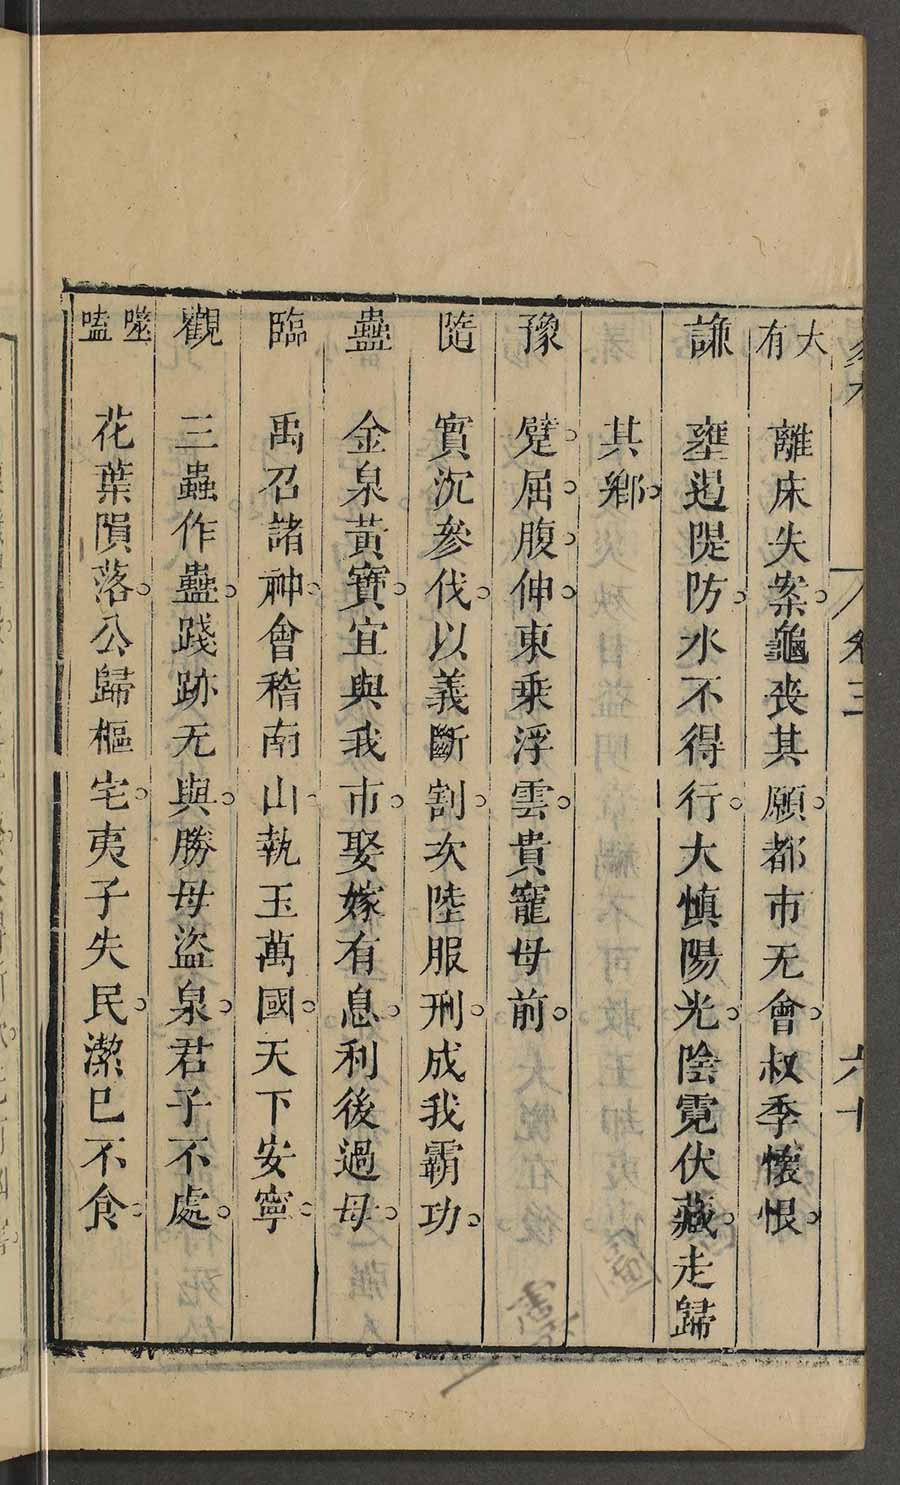 大有　離床失案。龜喪其願。都市无會。叔季懷恨。
謙　壅遏隄防。水不得行。大慎陽光。陰霓伏藏。走歸
其鄉。
豫　躄。屈。腹。伸。東乗浮雲。貴寵母前。
隨　實沉參伐。以義斷割。次陸服刑。成我霸功。
蠱　金泉黃寶。宜與我市。娶嫁有息。利後過母。
臨　禹召諸神。會稽南山。執玉萬國。天下安寧。
觀　三蟲作蠱。踐跡无與。勝母盜泉。君子不處。
噬嗑　花葉隕落。公歸樞宅。夷子失民。潔巳不食
卷三
六十